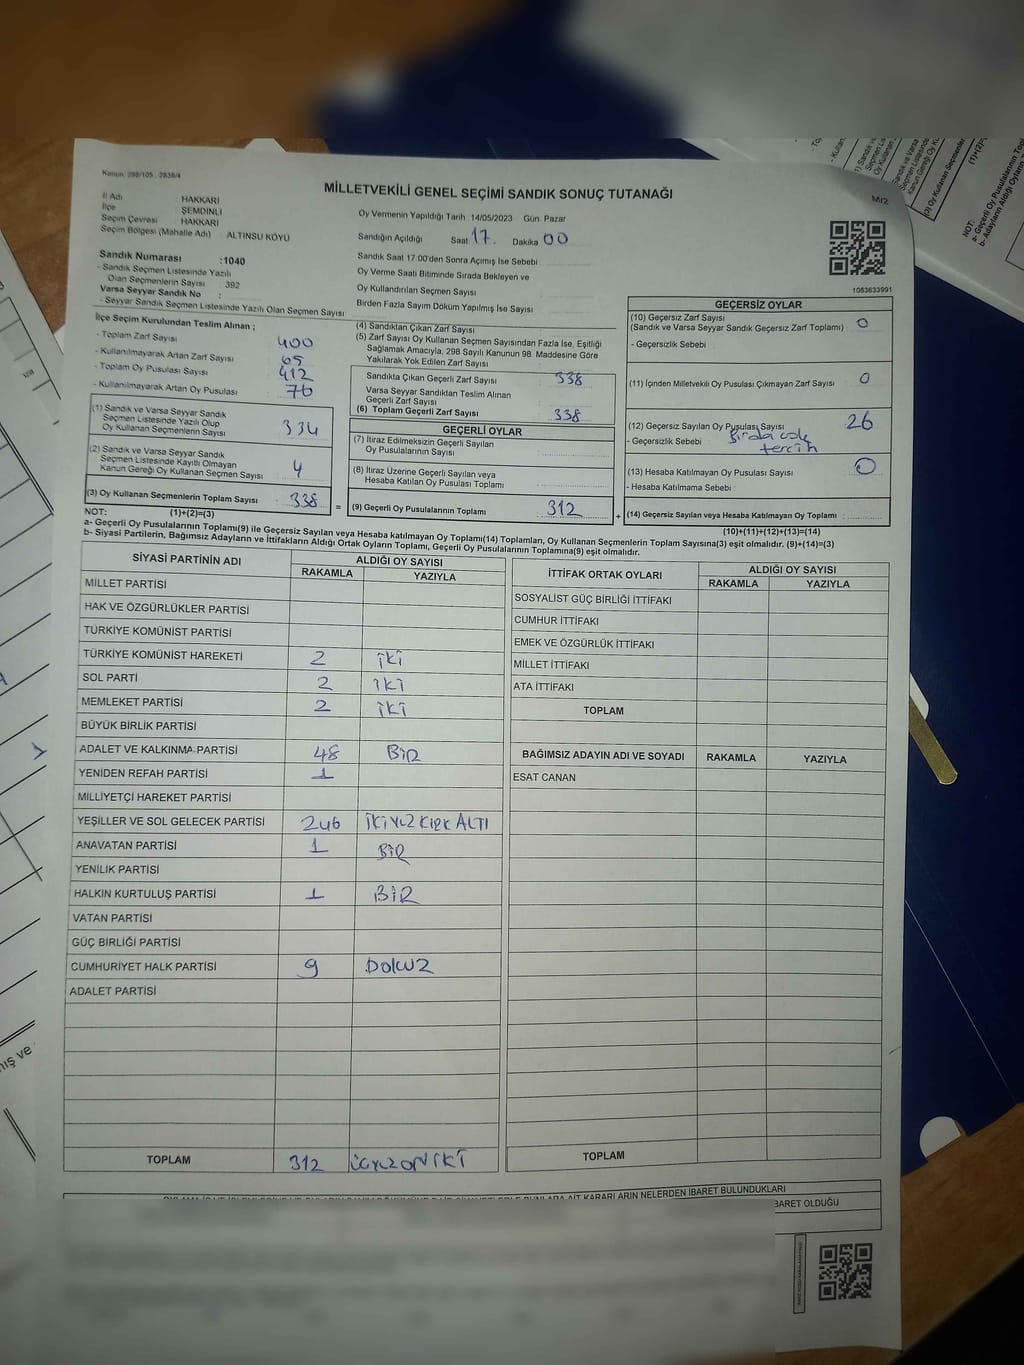 Kanun: 298/105 , 2839/4
MİLLETVEKİLİ GENEL SEÇİMİ SANDIK SONUÇ TUTANAĞI
M/2
İl Adı HAKKARİ
İlçe ŞEMDİNLİ
Seçim Çevresi HAKKARİ
Seçim Bölgesi (Mahalle Adı) ALTINSU KÖYÜ
Sandık Numarası :1040
- Sandık Seçmen Listesinde Yazılı
Olan Seçmenlerin Sayısı 392
Varsa Seyyar Sandık No :
- Seyyar Sandık Seçmen Listesinde Yazılı Olan Seçmen Sayısı
Oy Vermenin Yapıldığı Tarih 14/05/2023 Gün Pazar
Sandığın Açıldığı Saat 17 Dakika 00
Sandık Saat 17:00'den Sonra Açılmış İse Sebebi
Oy Verme Saati Bitiminde Sırada Bekleyen ve
Oy Kullandırılan Seçmen Sayısı
Birden Fazla Sayım Döküm Yapılmış İse Sayısı
1063633991
İlçe Seçim Kurulundan Teslim Alınan ;
- Toplam Zarf Sayısı 400
- Kullanılmayarak Artan Zarf Sayısı 65
- Toplam Oy Pusulası Sayısı 412
- Kullanılmayarak Artan Oy Pusulası 76
(1) Sandık ve Varsa Seyyar Sandık
Seçmen Listesinde Yazılı Olup
Oy Kullanan Seçmenlerin Sayısı 334
(2) Sandık ve Varsa Seyyar Sandık
Seçmen Listesinde Kayıtlı Olmayan
Kanun Gereği Oy Kullanan Seçmen Sayısı 4
(3) Oy Kullanan Seçmenlerin Toplam Sayısı 338
(4) Sandıktan Çıkan Zarf Sayısı
(5) Zarf Sayısı Oy Kullanan Seçmen Sayısından Fazla İse, Eşitliği
Sağlamak Amacıyla, 298 Sayılı Kanunun 98. Maddesine Göre
Yakılarak Yok Edilen Zarf Sayısı
Sandıkta Çıkan Geçerli Zarf Sayısı 338
Varsa Seyyar Sandıktan Teslim Alınan
Geçerli Zarf Sayısı
(6) Toplam Geçerli Zarf Sayısı 338
GEÇERLİ OYLAR
(7) İtiraz Edilmeksizin Geçerli Sayılan
Oy Pusulalarının Sayısı
(8) İtiraz Üzerine Geçerli Sayılan veya
Hesaba Katılan Oy Pusulası Toplamı
= (9) Geçerli Oy Pusulalarının Toplamı 312 +
GEÇERSİZ OYLAR
(10) Geçersiz Zarf Sayısı
(Sandık ve Varsa Seyyar Sandık Geçersiz Zarf Toplamı) 0
- Geçersizlik Sebebi
(11) İçinden Milletvekili Oy Pusulası Çıkmayan Zarf Sayısı 0
(12) Geçersiz Sayılan Oy Pusulası Sayısı 26
- Geçersizlik Sebebi
tercih
(13) Hesaba Katılmayan Oy Pusulası Sayısı 0
- Hesaba Katılmama Sebebi
(14) Geçersiz Sayılan veya Hesaba Katılmayan Oy Toplamı
NOT: (1)+(2)=(3)
(10)+(11)+(12)+(13)=(14)
a- Geçerli Oy Pusulalarının Toplamı(9) ile Geçersiz Sayılan veya Hesaba katılmayan Oy Toplamı(14) Toplamları, Oy Kullanan Seçmenlerin Toplam Sayısına(3) eşit olmalıdır. (9)+(14)=(3)
b- Siyasi Partilerin, Bağımsız Adayların ve İttifakların Aldığı Ortak Oyların Toplamı, Geçerli Oy Pusulalarının Toplamına(9) eşit olmalıdır.
SİYASİ PARTİNİN ADI ALDIĞI OY SAYISI
RAKAMLA YAZIYLA
MİLLET PARTİSİ
HAK VE ÖZGÜRLÜKLER PARTİSİ
TÜRKİYE KOMÜNİST PARTİSİ
TÜRKİYE KOMÜNİST HAREKETİ 2 İKİ
SOL PARTİ 2 İKİ
MEMLEKET PARTİSİ 2 İKİ
BÜYÜK BİRLİK PARTİSİ
ADALET VE KALKINMA PARTİSİ 48 BİR
YENİDEN REFAH PARTİSİ 1
MİLLİYETÇİ HAREKET PARTİSİ
YEŞİLLER VE SOL GELECEK PARTİSİ 246 İKİYÜZ KIRK ALTI
ANAVATAN PARTİSİ 1 BİR
YENİLİK PARTİSİ
HALKIN KURTULUŞ PARTİSİ 1 BİR
VATAN PARTİSİ
GÜÇ BİRLİĞİ PARTİSİ
CUMHURİYET HALK PARTİSİ 9 DOKUZ
ADALET PARTİSİ
TOPLAM 312 ÜÇYÜZONİKİ
İTTİFAK ORTAK OYLARI ALDIĞI OY SAYISI
RAKAMLA YAZIYLA
SOSYALİST GÜÇ BİRLİĞİ İTTİFAKI
CUMHUR İTTİFAKI
EMEK VE ÖZGÜRLÜK İTTİFAKI
MİLLET İTTİFAKI
ATA İTTİFAKI
TOPLAM
BAĞIMSIZ ADAYIN ADI VE SOYADI RAKAMLA YAZIYLA
ESAT CANAN
TOPLAM
BUNLARA AİT KARARLARIN NELERDEN İBARET BULUNDUKLARI
İBARET OLDUĞU